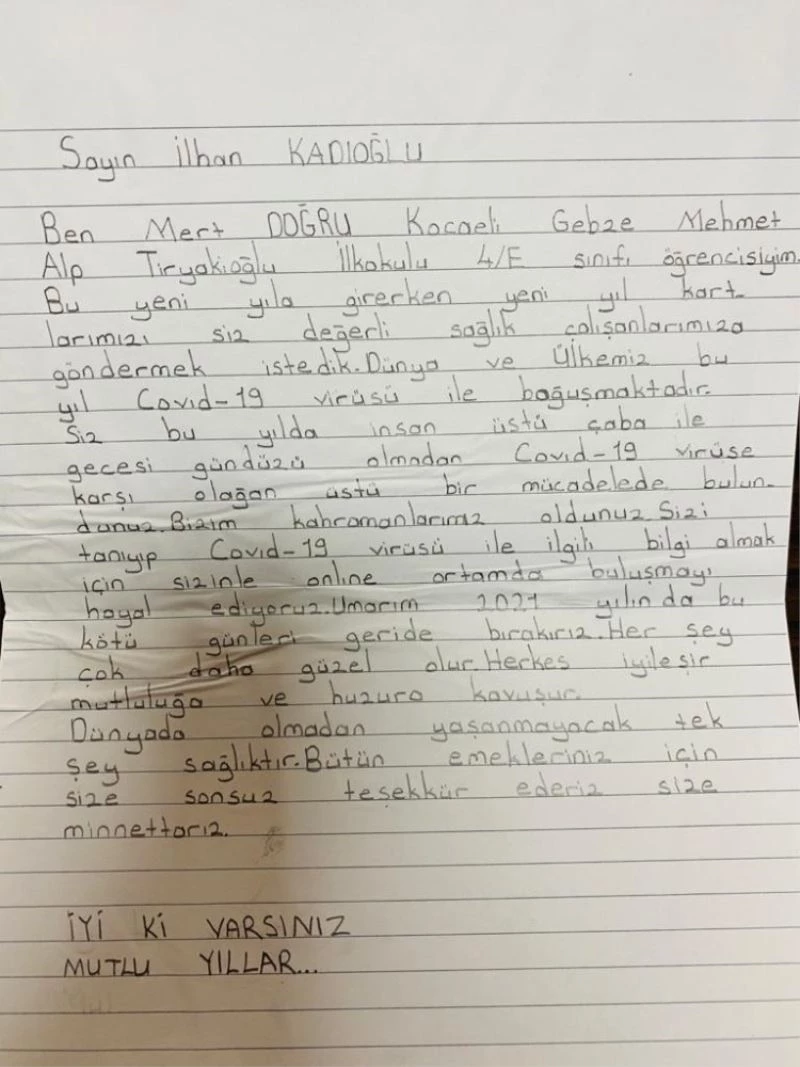 Sayın İlhan KADIOĞLU
Ben Mert DOĞRU Kocaeli Gebze Mehmet
Alp Tiryakioğlu İlkokulu 4/E sınıfı öğrencisiyim.
Bu yeni yıla girerken yeni yıl kart-
larımızı siz değerli sağlık çalışanlarımıza
göndermek istedik.Dünya ve Ülkemiz bu
yıl Covıd-19 virüsü ile boğuşmaktadır.
Siz bu yılda insan üstü çaba ile
gecesi gündüzü olmadan Covıd-19 virüse
karşı olağan üstü bir mücadelede bulun-
dunuz.Bizim kahramanlarımız oldunuz.Sizi
tanıyıp Covıd-19 virüsü ile ilgili bilgi almak
için sizinle online ortamda buluşmayı
hayal ediyoruz.Umarım 2021 yılın da bu
kötü günleri geride bırakırız.Her şey
çok daha güzel olur.Herkes iyileşir
mutluluğa ve huzura kavuşur.
Dünyada olmadan yaşanmayacak tek
şey sağlıktır.Bütün emekleriniz için
size sonsuz teşekkür ederiz size
minnettarız.
İYİ Kİ VARSINIZ
MUTLU YILLAR...